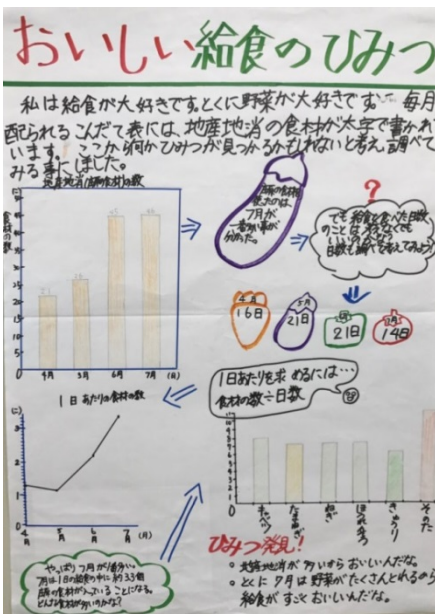 おいしい給食のひみつ
私は給食が大好きです。とくに野菜が大好きです。毎月
配られるこんだて表には、地産地消の食材が太字で書かれて
います。ここから何かひみつが見つかるかもしれないと考え、調べて
みる事にしました。
の数
食材の数
50
45
40
35
30
25
20
15
10
5
0
4月
5月
6月
7月
(月)
7月が
一番多い事が
分かった。
?
でも給食を食べた日数
のことは考えなくても
いいのかな?
4月
16日
5月
21日
6月
21日
7月
14日
1日あたりを求めるには…
食材の数÷日数
1日あたりの食材の数
3
2
1
0
4月
5月
6月
7月
(月)
キャベツ
たまねぎ
ねぎ
きゅうり
その他
やっぱり7月が1番多い。
7月は1日の給食の中に約3.3個
の食材が入っていることになる。
どんな食材が多いのかな?
ひみつ発見!
地産地消が多いからおいしいんだな。
とくに7月は野菜がたくさんとれるから
給食がすごくおいしいんだな。